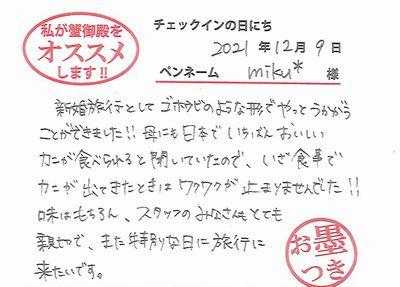 私が蟹御殿を
オススメ
します!!
チェックインの日にち
2021年12月9日
ペンネーム miku* 様
新婚旅行として ゴホウビのような形でやっとうかがう
ことができました!! 母にも日本でいちばんおいしい
カニが食べられると聞いていたので、いざ食事で
カニが出てきたときは ワクワクが止まりませんでした!!
味はもちろん、スタッフのみなさんもとても
親切で、また特別な日に旅行に
来たいです。
お墨
つき